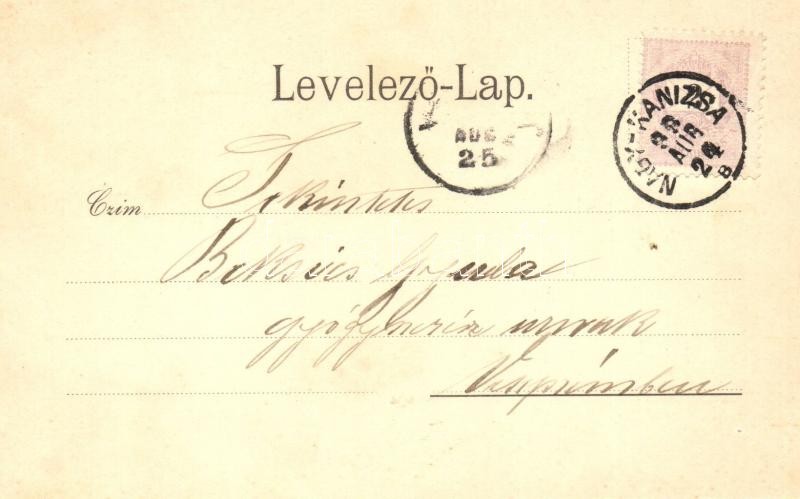 Levelező-Lap.
NAGY-KANIZSA
98
AUG
24
B
AUG
25
Czim
Tekintetes
Beksics Gyula
gyógyszerész urnak
Veszprémben